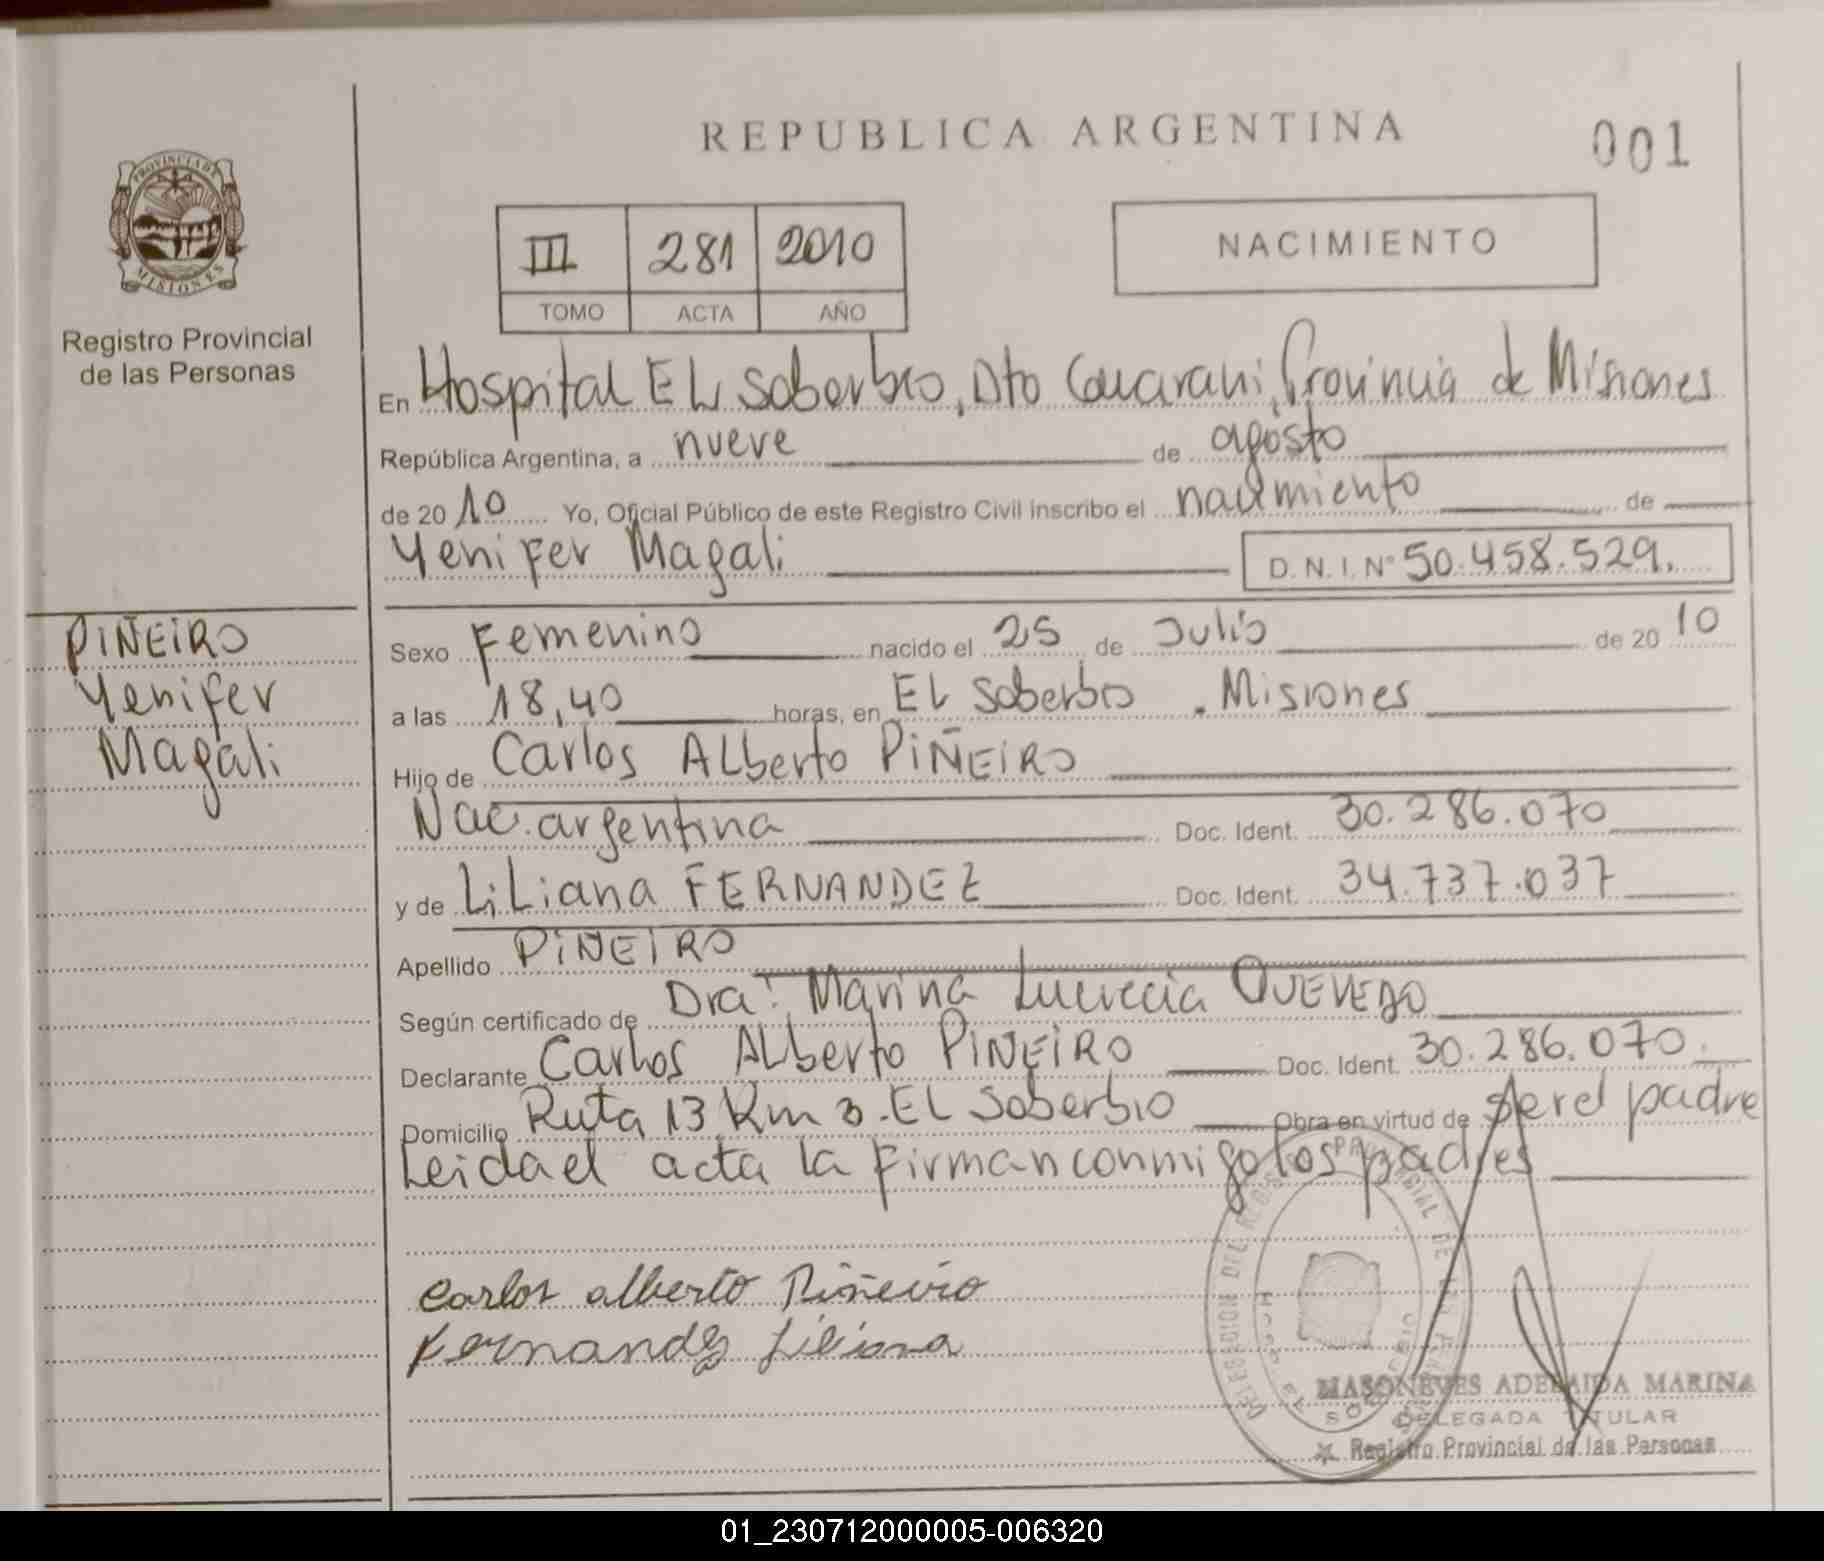 REPUBLICA ARGENTINA
001
PROVINCIA DE
MISIONES
Registro Provincial
de las Personas
III 281 2010
TOMO ACTA AÑO
NACIMIENTO
En Hospital EL Soberbio, Dto Guarani, Provincia de Misiones
República Argentina, a nueve de agosto
de 2010 Yo, Oficial Público de este Registro Civil inscribo el nacimiento de
Yenifer Magali D.N.I. Nº 50.458.529.
PIÑEIRO
Yenifer
Magali
Sexo Femenino nacido el 25 de Julio de 2010
a las 18,40 horas, en EL Soberbio . Misiones
Hijo de Carlos ALberto PIÑEIRO
Nac. argentina Doc. Ident. 30.286.070
y de LiLiana FERNANDEZ Doc. Ident. 34.737.037
Apellido PIÑEIRO
Según certificado de Dra: Marina Lucrecia QUEVEDO
Declarante Carlos ALberto PIÑEIRO Doc. Ident. 30.286.070.
Domicilio Ruta 13 Km 3. EL Soberbio Obra en virtud de ser el padre
Leida el acta la firman conmigo los padres
Carlos alberto Piñeiro
Fernandez Liliana
MASONEVES ADELAIDA MARINA
DELEGADA TITULAR
Registro Provincial de las Personas
01_230712000005-006320